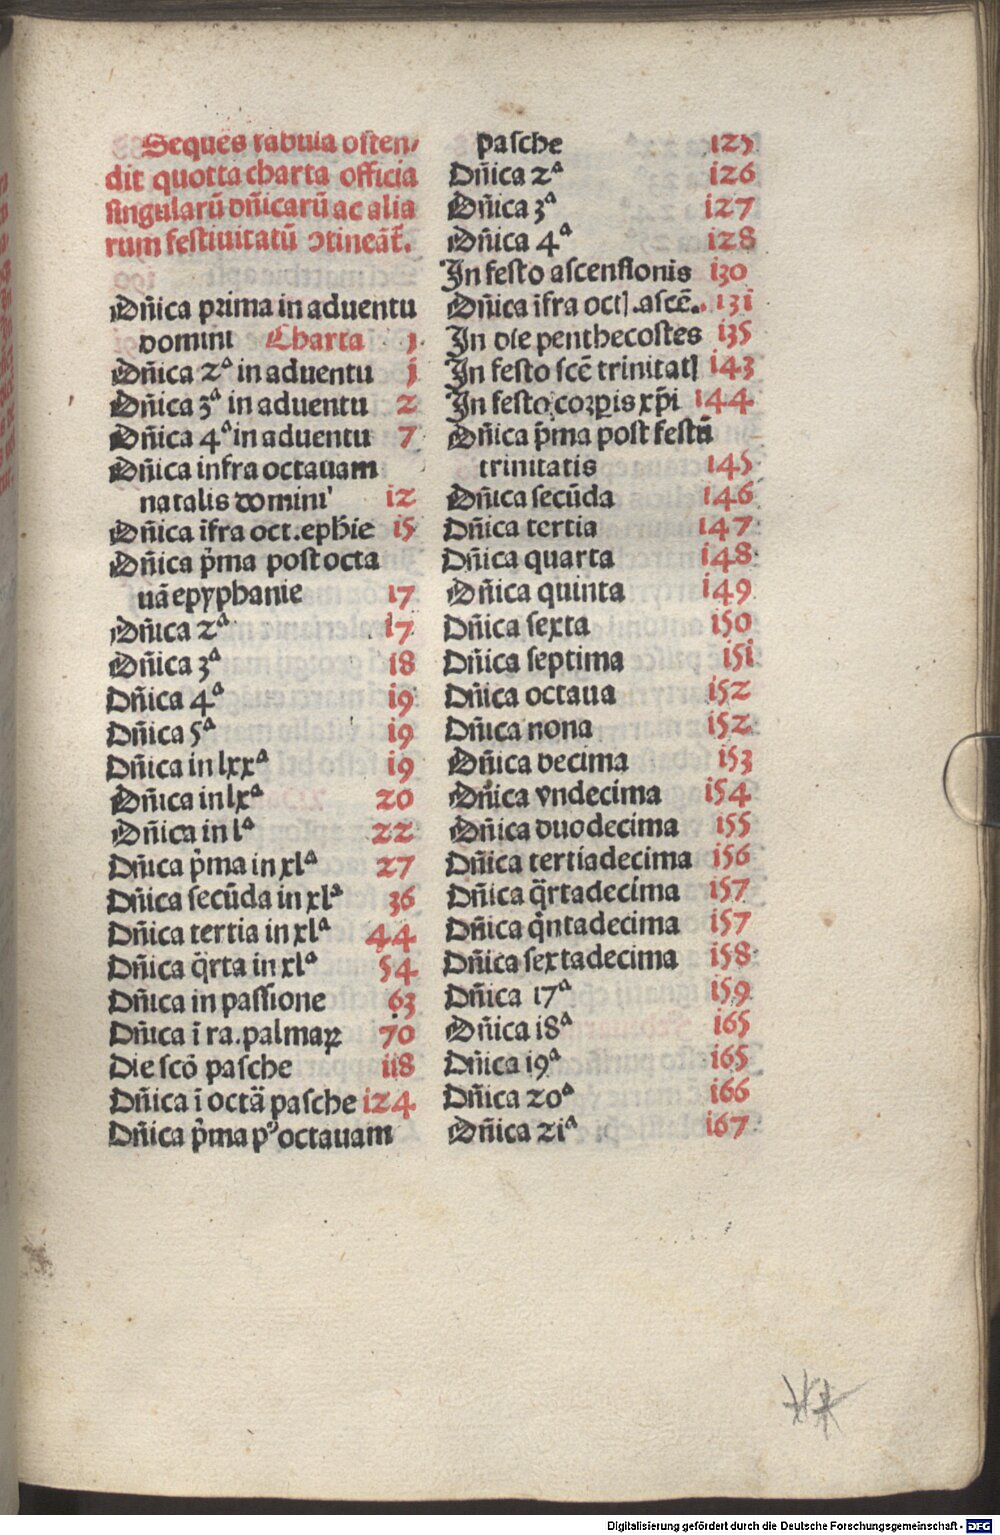 Sequēs tabula osten/
dit quotta charta officia
singularū dn̄icarū ac alia
rum festiuitatū ↄtineāt̄.
Dn̄ica prima in aduentu
domini Charta 1
Dn̄ica 2ᵃ in aduentu j
Dn̄ica 3ᵃ in aduentu 2
Dn̄ica 4ᵃ in aduentu 7
Dn̄ica infra octauam
natalis domini 12
Dn̄ica īfra oct. eph̄ie 15
Dn̄ica p̄ma post octa
uā epyphanie 17
Dn̄ica 2ᵃ 17
Dn̄ica 3ᵃ 18
Dn̄ica 4ᵃ 19
Dn̄ica 5ᵃ 19
Dn̄ica in lxxᵃ 19
Dn̄ica in lxᵃ 20
Dn̄ica in lᵃ 22
Dn̄ica p̄ma in xlᵃ 27
Dn̄ica secūda in xlᵃ 36
Dn̄ica tertia in xlᵃ 44
Dn̄ica q̄rta in xlᵃ 54
Dn̄ica in passione 63
Dn̄ica ī ra. palmaꝝ 70
Die scō pasche 118
Dn̄ica ī octā pasche 124
Dn̄ica p̄ma pꝰ octauam
pasche 125
Dn̄ica 2ᵃ 126
Dn̄ica 3ᵃ 127
Dn̄ica 4ᵃ 128
In festo ascensionis 130
Dn̄ica īfra octꝭ. ascē. 131
In die penthecostes 135
In festo scē trinitatꝭ 143
In festo corꝑis xp̄i 144
Dn̄ica p̄ma post festū
trinitatis 145
Dn̄ica secūda 146
Dn̄ica tertia 147
Dn̄ica quarta 148
Dn̄ica quinta 149
Dn̄ica sexta 150
Dn̄ica septima 151
Dn̄ica octaua 152
Dn̄ica nona 152
Dn̄ica decima 153
Dn̄ica vndecima 154
Dn̄ica duodecima 155
Dn̄ica tertiadecima 156
Dn̄ica q̄rtadecima 157
Dn̄ica q̄ntadecima 157
Dn̄ica sextadecima 158
Dn̄ica 17ᵃ 159
Dn̄ica 18ᵃ 165
Dn̄ica 19ᵃ 165
Dn̄ica 20ᵃ 166
Dn̄ica 21ᵃ 167
Digitalisierung gefördert durch die Deutsche Forschungsgemeinschaft - DFG